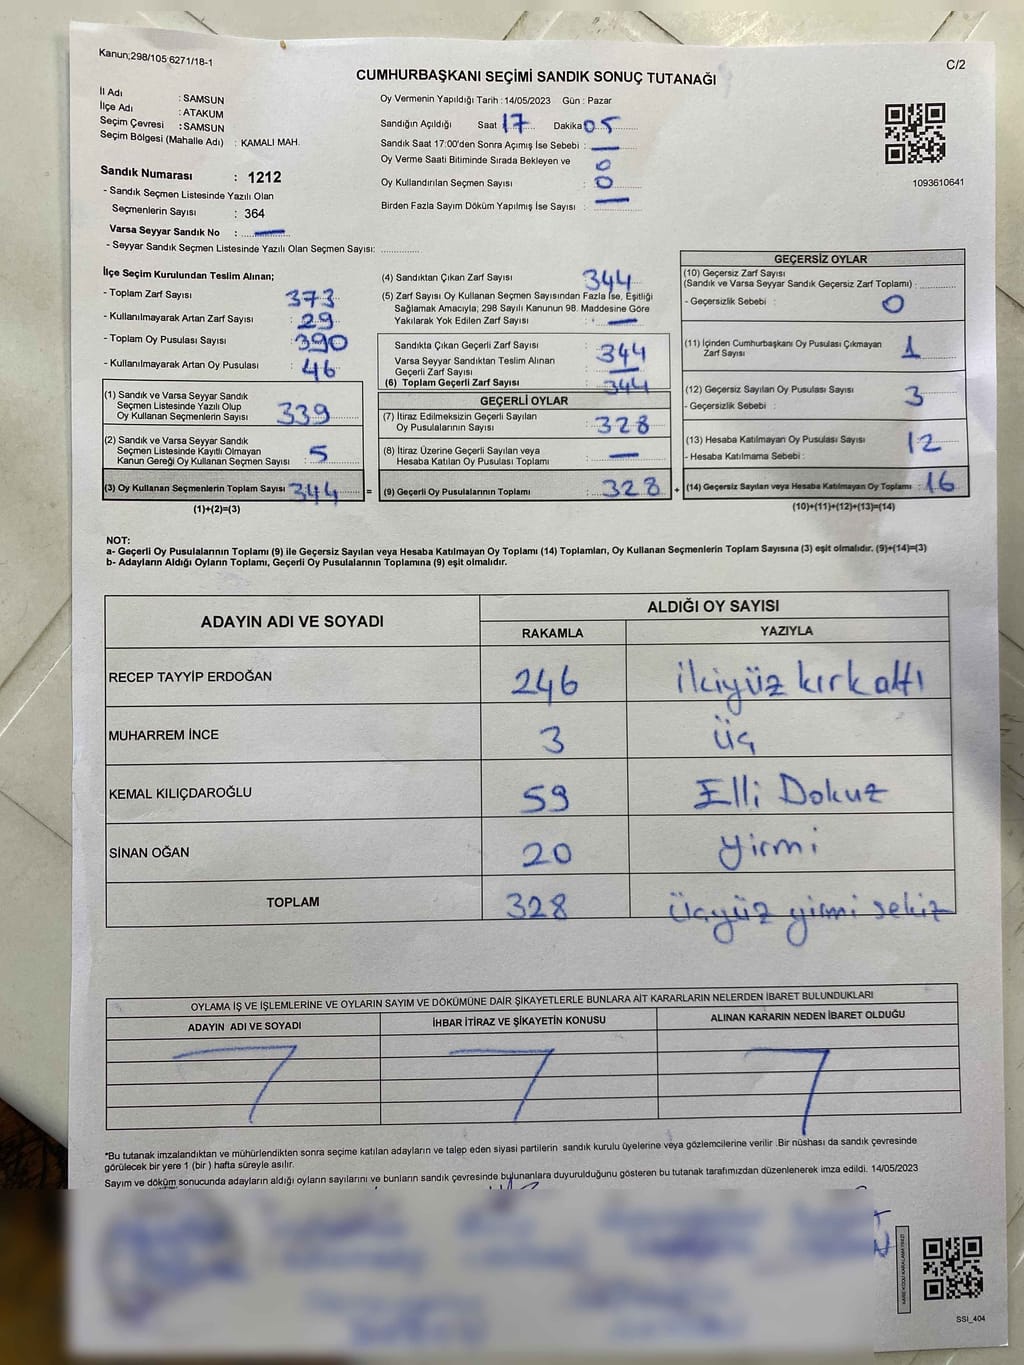 Kanun;298/105 6271/18-1
C/2
CUMHURBAŞKANI SEÇİMİ SANDIK SONUÇ TUTANAĞI
İl Adı : SAMSUN
İlçe Adı : ATAKUM
Seçim Çevresi : SAMSUN
Seçim Bölgesi (Mahalle Adı) : KAMALI MAH.
Sandık Numarası : 1212
- Sandık Seçmen Listesinde Yazılı Olan
Seçmenlerin Sayısı : 364
Varsa Seyyar Sandık No : —
- Seyyar Sandık Seçmen Listesinde Yazılı Olan Seçmen Sayısı: ............
Oy Vermenin Yapıldığı Tarih : 14/05/2023 Gün : Pazar
Sandığın Açıldığı Saat 17 Dakika 05
Sandık Saat 17:00'den Sonra Açımış İse Sebebi : —
Oy Verme Saati Bitiminde Sırada Bekleyen ve 0
Oy Kullandırılan Seçmen Sayısı : 0
Birden Fazla Sayım Döküm Yapılmış İse Sayısı : —
1093610641
İlçe Seçim Kurulundan Teslim Alınan;
- Toplam Zarf Sayısı : 373
- Kullanılmayarak Artan Zarf Sayısı : 29
- Toplam Oy Pusulası Sayısı : 390
- Kullanılmayarak Artan Oy Pusulası : 46
(1) Sandık ve Varsa Seyyar Sandık
Seçmen Listesinde Yazılı Olup
Oy Kullanan Seçmenlerin Sayısı : 339
(2) Sandık ve Varsa Seyyar Sandık
Seçmen Listesinde Kayıtlı Olmayan
Kanun Gereği Oy Kullanan Seçmen Sayısı : 5
(3) Oy Kullanan Seçmenlerin Toplam Sayısı : 344
(1)+(2)=(3)
=
(4) Sandıktan Çıkan Zarf Sayısı : 344
(5) Zarf Sayısı Oy Kullanan Seçmen Sayısından Fazla İse, Eşitliği
Sağlamak Amacıyla; 298 Sayılı Kanunun 98. Maddesine Göre
Yakılarak Yok Edilen Zarf Sayısı : —
Sandıkta Çıkan Geçerli Zarf Sayısı : 344
Varsa Seyyar Sandıktan Teslim Alınan
Geçerli Zarf Sayısı : —
(6) Toplam Geçerli Zarf Sayısı : 344
GEÇERLİ OYLAR
(7) İtiraz Edilmeksizin Geçerli Sayılan
Oy Pusulalarının Sayısı : 328
(8) İtiraz Üzerine Geçerli Sayılan veya
Hesaba Katılan Oy Pusulası Toplamı : —
(9) Geçerli Oy Pusulalarının Toplamı : 328
+
GEÇERSİZ OYLAR
(10) Geçersiz Zarf Sayısı
(Sandık ve Varsa Seyyar Sandık Geçersiz Zarf Toplamı) :
- Geçersizlik Sebebi : 0
(11) İçinden Cumhurbaşkanı Oy Pusulası Çıkmayan
Zarf Sayısı : 1
(12) Geçersiz Sayılan Oy Pusulası Sayısı : 3
- Geçersizlik Sebebi :
(13) Hesaba Katılmayan Oy Pusulası Sayısı : 12
- Hesaba Katılmama Sebebi :
(14) Geçersiz Sayılan veya Hesaba Katılmayan Oy Toplamı : 16
(10)+(11)+(12)+(13)=(14)
NOT:
a- Geçerli Oy Pusulalarının Toplamı (9) ile Geçersiz Sayılan veya Hesaba Katılmayan Oy Toplamı (14) Toplamları, Oy Kullanan Seçmenlerin Toplam Sayısına (3) eşit olmalıdır. (9)+(14)=(3)
b- Adayların Aldığı Oyların Toplamı, Geçerli Oy Pusulalarının Toplamına (9) eşit olmalıdır.
ADAYIN ADI VE SOYADI
ALDIĞI OY SAYISI
RAKAMLA YAZIYLA
RECEP TAYYİP ERDOĞAN 246 ikiyüz kırk altı
MUHARREM İNCE 3 üç
KEMAL KILIÇDAROĞLU 59 Elli Dokuz
SİNAN OĞAN 20 yirmi
TOPLAM 328 üçyüz yirmi sekiz
OYLAMA İŞ VE İŞLEMLERİNE VE OYLARIN SAYIM VE DÖKÜMÜNE DAİR ŞİKAYETLERLE BUNLARA AİT KARARLARIN NELERDEN İBARET BULUNDUKLARI
ADAYIN ADI VE SOYADI İHBAR İTİRAZ VE ŞİKAYETİN KONUSU ALINAN KARARIN NEDEN İBARET OLDUĞU
*Bu tutanak imzalandıktan ve mühürlendikten sonra seçime katılan adayların ve talep eden siyasi partilerin sandık kurulu üyelerine veya gözlemcilerine verilir .Bir nüshası da sandık çevresinde
görülecek bir yere 1 (bir ) hafta süreyle asılır.
Sayım ve döküm sonucunda adayların aldığı oyların sayılarını ve bunların sandık çevresinde bulunanlara duyurulduğunu gösteren bu tutanak tarafımızdan düzenlenerek imza edildi. 14/05/2023
SSI_404